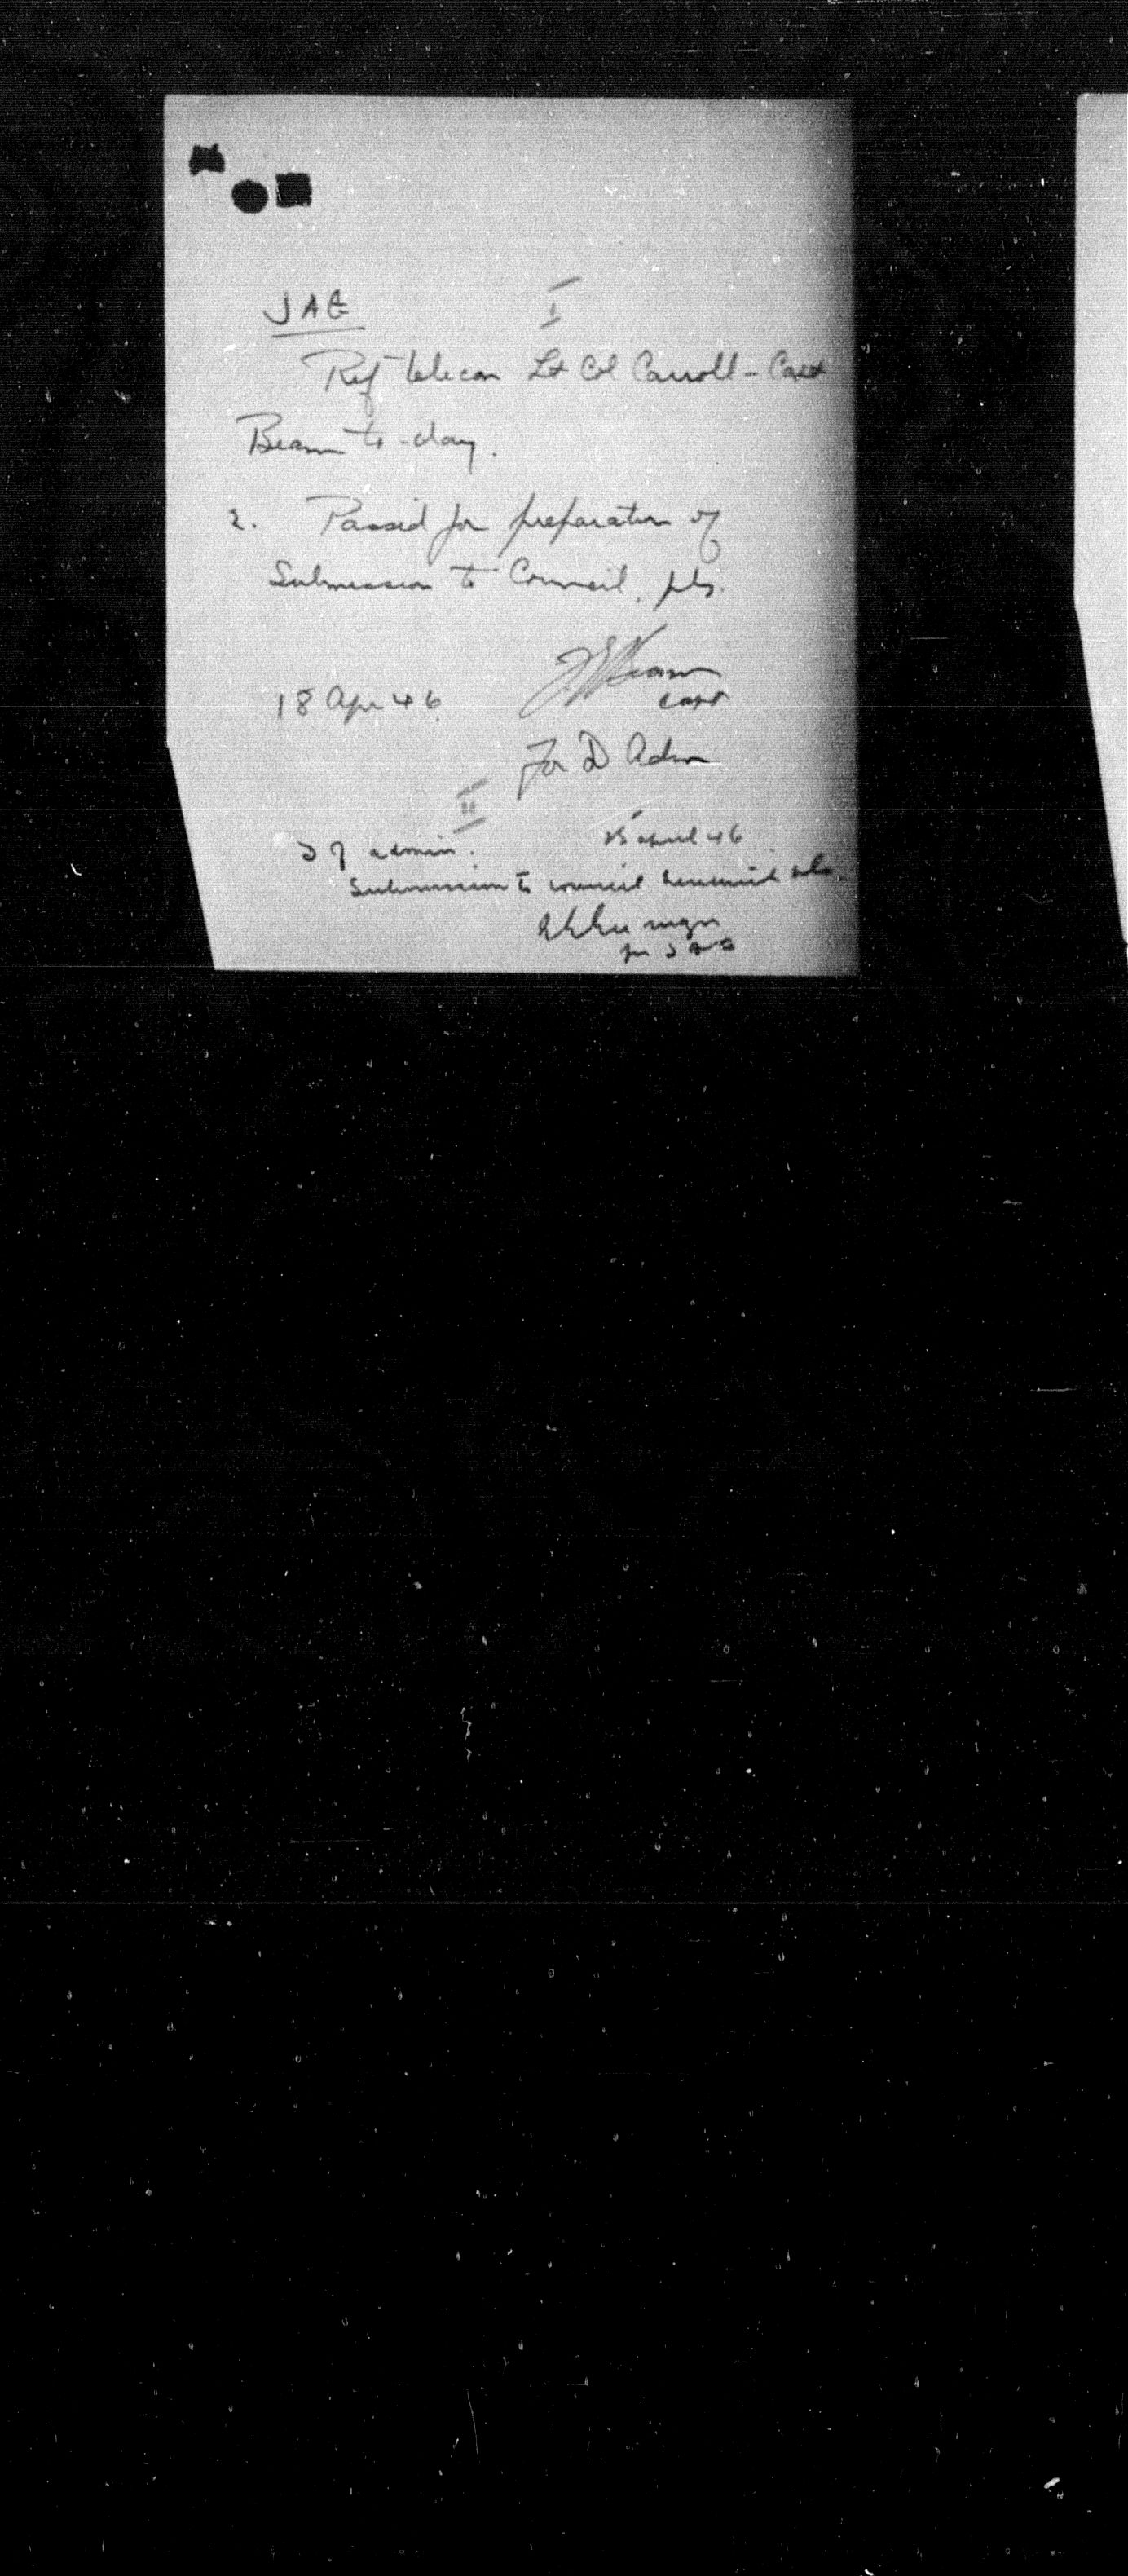 I
JAG
Ref telecon Lt Col Carroll - Capt
Beam to-day.
2. Passed for preparation of
Submission to Council, pls.
18 Apr 46
Capt
For D Adm
II
D of admin. 25 april 46
Submission to council herewith pls.
for JAG